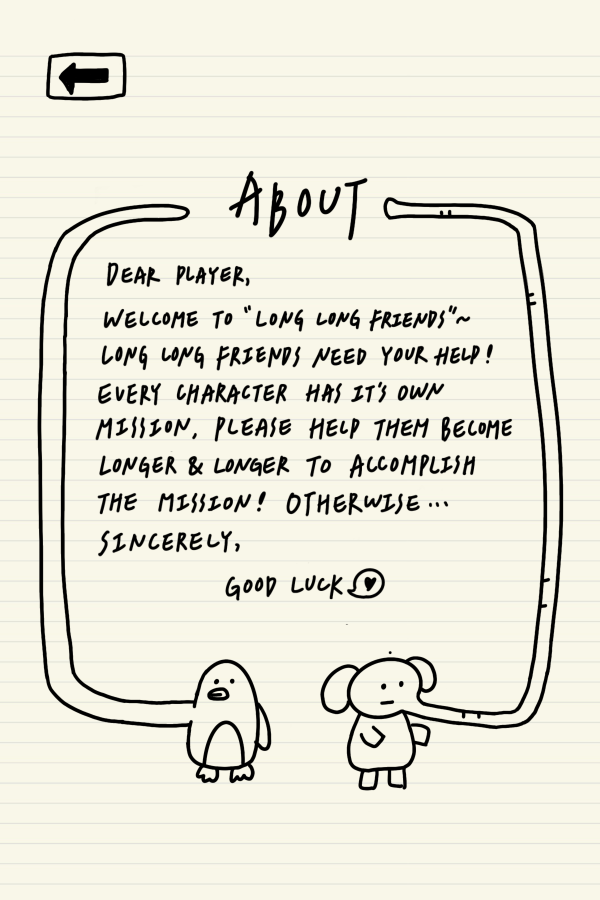 ABOUT
DEAR PLAYER,
WELCOME TO "LONG LONG FRIENDS"~
LONG LONG FRIENDS NEED YOUR HELP!
EVERY CHARACTER HAS IT'S OWN
MISSION, PLEASE HELP THEM BECOME
LONGER & LONGER TO ACCOMPLISH
THE MISSION! OTHERWISE...
SINCERELY,
GOOD LUCK